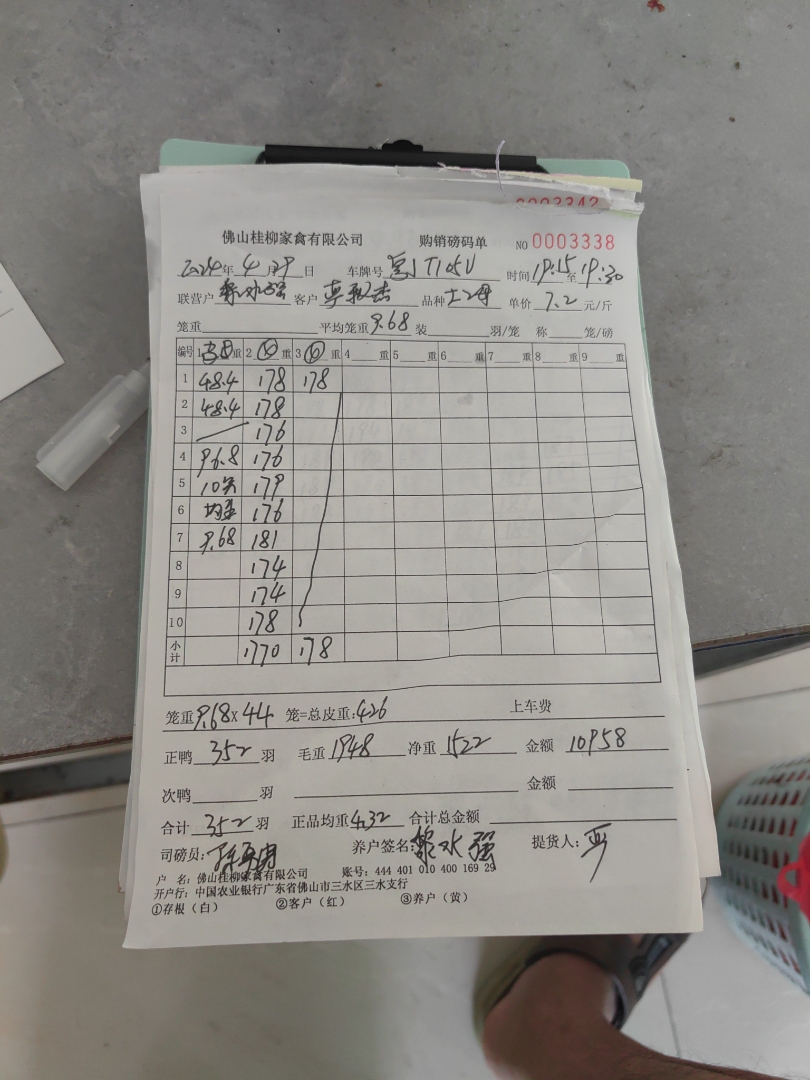 0003342
佛山桂柳家禽有限公司 购销磅码单 NO 0003338
2024年4月29日 车牌号 T105U 时间19:15至19:30
联营户 客户 品种 土2母 单价 7.2 元/斤
笼重 平均笼重9.68 装 羽/笼 称 笼/磅
编号 1 重 2 ⑥ 重 3 ⑥ 重 4 重 5 重 6 重 7 重 8 重 9 重
1 48.4 178 178
2 48.4 178
3 176
4 96.8 176
5 10只 179
6 均重 176
7 9.68 181
8 174
9 174
10 178
小计 1770 178
笼重9.68×44 笼=总皮重:426 上车费
正鸭 352 羽 毛重1948 净重1522 金额 10958
次鸭 羽 金额
合计 352 羽 正品均重4.32 合计总金额
司磅员: 养户签名:黎水强 提货人:
户 名: 佛山桂柳家禽有限公司 账号: 444 401 010 400 169 29
开户行: 中国农业银行广东省佛山市三水区三水支行
①存根（白） ②客户（红） ③养户（黄）